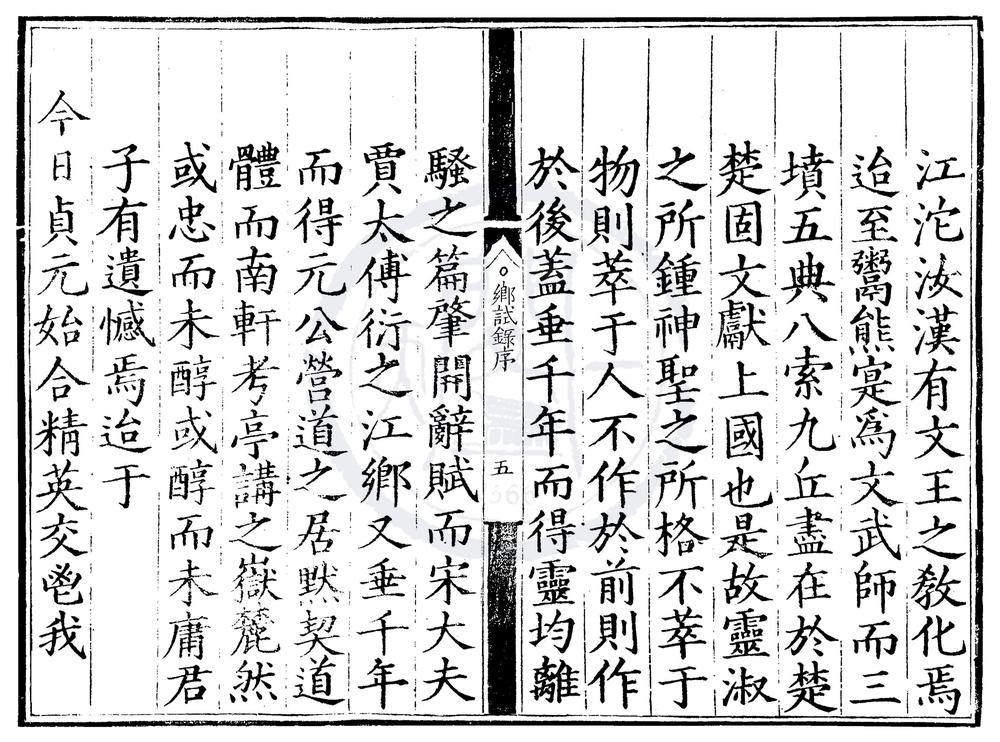 江沱汝漢有文王之教化焉
迨至鬻熊寔為文武師而三
墳五典八索九丘盡在於楚
楚固文獻上國也是故靈淑
之所鍾神聖之所格不萃于
物則萃于人不作於前則作
於後蓋垂千年而得靈均離
鄉試錄序
五
騷之篇肇開辭賦而宋大夫
賈太傅衍之江鄉又垂千年
而得元公營道之居默契道
體而南軒考亭講之嶽麓然
或忠而未醇或醇而未庸君
子有遺憾焉迨于
今日貞元始合精英交鬯我